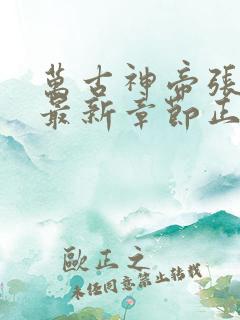 萬古神帝張
最新章節正
歐正之
未經同意禁止轉載